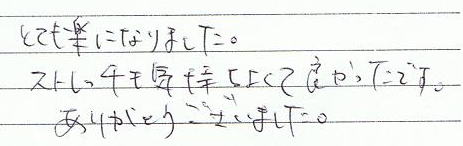 とても楽になりました。
ストレッチも気持ちよくて良かったです。
ありがとうございました。